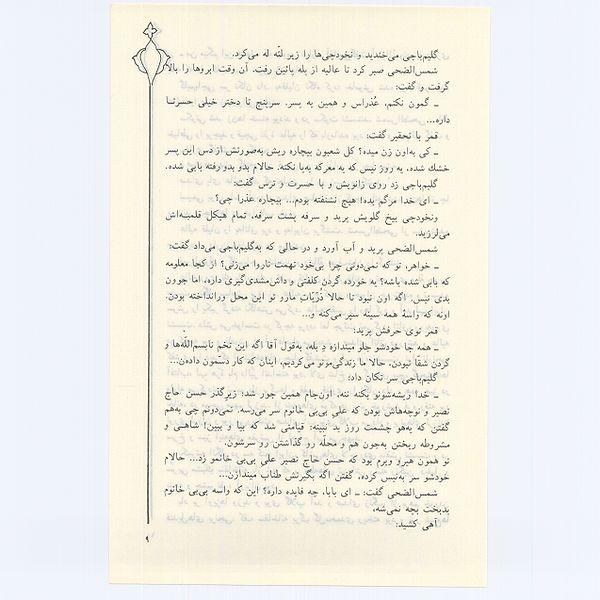 گلیم‌باجی می‌خندید و نخودچی‌ها را زیر لثّه له می‌کرد.
شمس‌الضحی صبر کرد تا عالیه از پله پائین رفت. آن وقت ابروها را بالا
گرفت و گفت:
ـ گمون نکنم، عُذراس و همین یه پسر. سرپنج تا دختر خیلی حسرتـا
داره...
قمر با تحقیر گفت:
ـ کی به‌اون زن میده؟ کل شعبون بیچاره ریش به‌صورتش از دس این پسر
خشك شده. یه روز نیس که یه معرکه به‌پا نکنه. حالام بدو بدو رفته بابی شده.
گلیم‌باجی زد روی زانویش و با حسرت و ترس گفت:
ـ ای خدا مرگم بده! هیچ نشنفته بودم... بیچاره عذرا چی؟
ونخودچی بیخ گلویش پرید و سرفه پشت سرفه، تمام هیکل قلمبـه‌اش
می‌لرزید.
شمس‌الضحی پرید و آب آورد و در حالی که به‌گلیم‌باجی می‌داد گفت:
ـ خواهر، تو که نمی‌دونی چرا بی‌خود تهمت ناروا می‌زنی؟ از کجا معلومه
که بابی شده باشه؟ یه خورده گردن کلفتی و داش‌مشدی‌گیری داره، اما جوون
بدی نیس. اگه اون نبود تا حالا ذُرّیّات مارو تو این محل ورانداخته بودن.
اونه که واسۀ همه سینه سپر می‌کنه و...
قمر توی حرفش پرید:
ـ همه جا خودشو جلو میندازه دِ بله، به‌قول آقا اگه این تخم نابسم‌اللّه‌ها و
گردن شقّا نبودن، حالا ما زندگی‌مونو می‌کردیم. اینان که کار دسّمون داده‌ن...
گلیم‌باجی سر تکان داد:
ـ خدا ریشه‌شونو بکنه ننه. اون‌جام همین جور شد: زیرگذر حسن حاج
نصیر و نوچه‌هاش بودن که علی بی‌بی خانوم سر می‌رسه. نمی‌دونم چی به‌هم
گفتن که یه‌هو چشمت روز بد نبینه: قیامتی شد که بیا و ببین! شاهـی و
مشروطه ریختن به‌جون هم و محلّه رو گذاشتن رو سرشون.
تو همون هیرو ویرم بود که حسن حاج نصیر علی بی‌بی خانمو زد... حالام
خودشو سر به‌نیس کرده. گفتن اگه بگیرنش طناب میندازن...
شمس‌الضحی گفت: ـ ای بابا، چه فایده داره؟ این که واسه بی‌بی خانوم
بدبخت بچه نمی‌شه.
آهی کشید:
۹